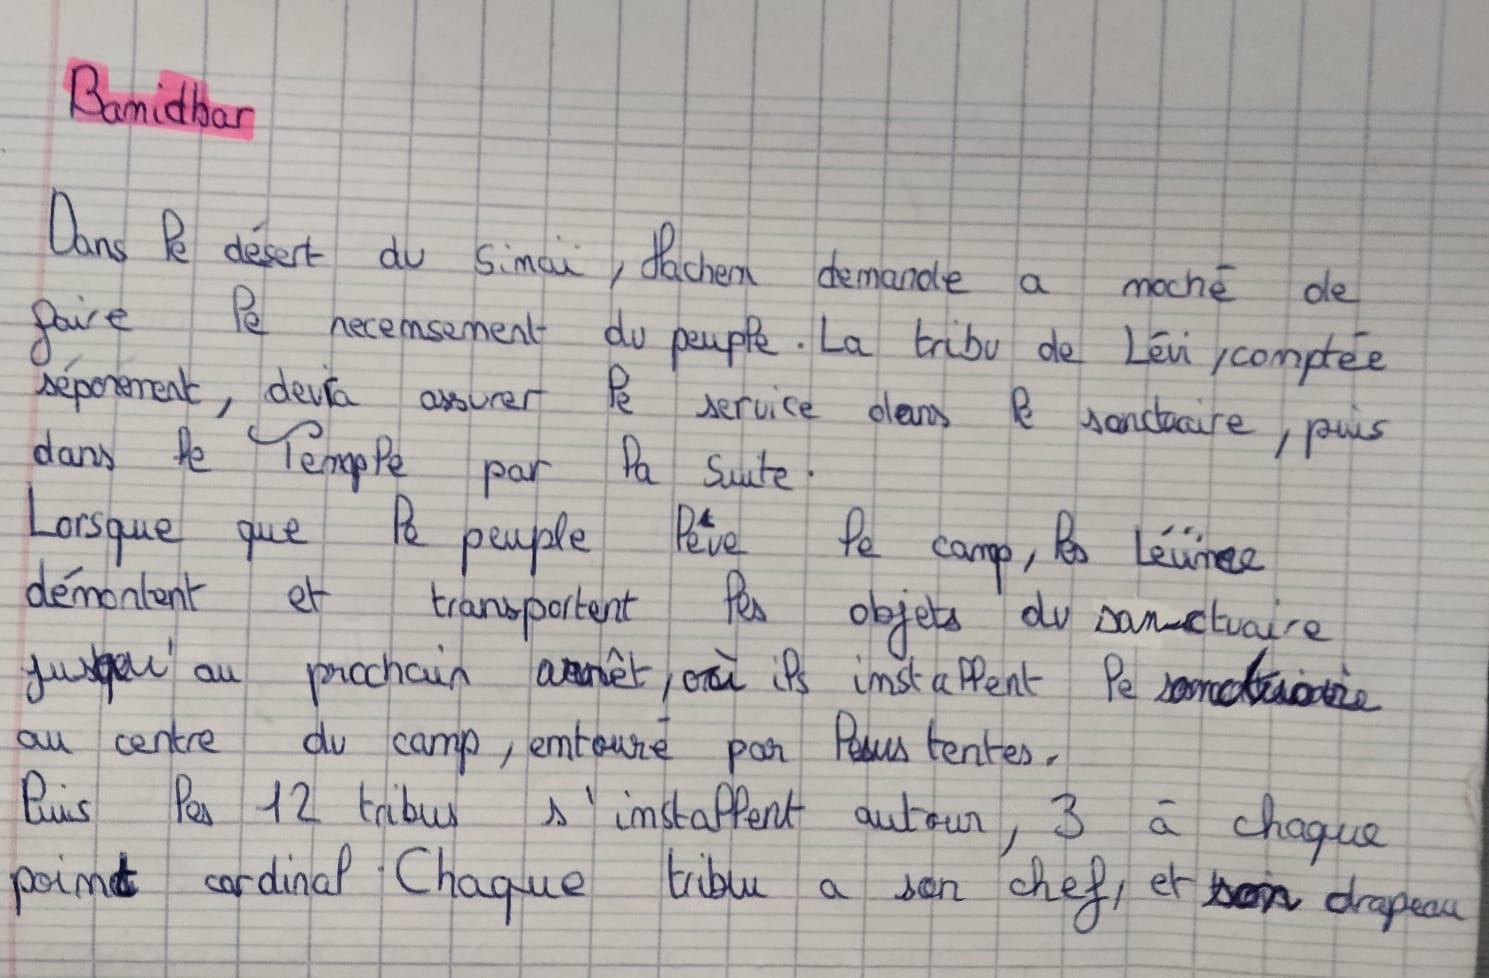 Bamidbar
Dans le désert du Sinaï, Hachem demande a moché de
faire le recensement du peuple. La tribu de Lévi, comptée
séparement, devra assurer le service dans le sanctuaire, puis
dans le Temple par la suite.
Lorsque que le peuple lève le camp, les Léviim
démontent et transportent les objets du sanctuaire
jusqu'au prochain arrêt, où ils installent le sanctuaire
au centre du camp, entouré par leurs tentes.
Puis les 12 tribus s'installent autour, 3 à chaque
point cardinal. Chaque tribu a son chef, et son drapeau